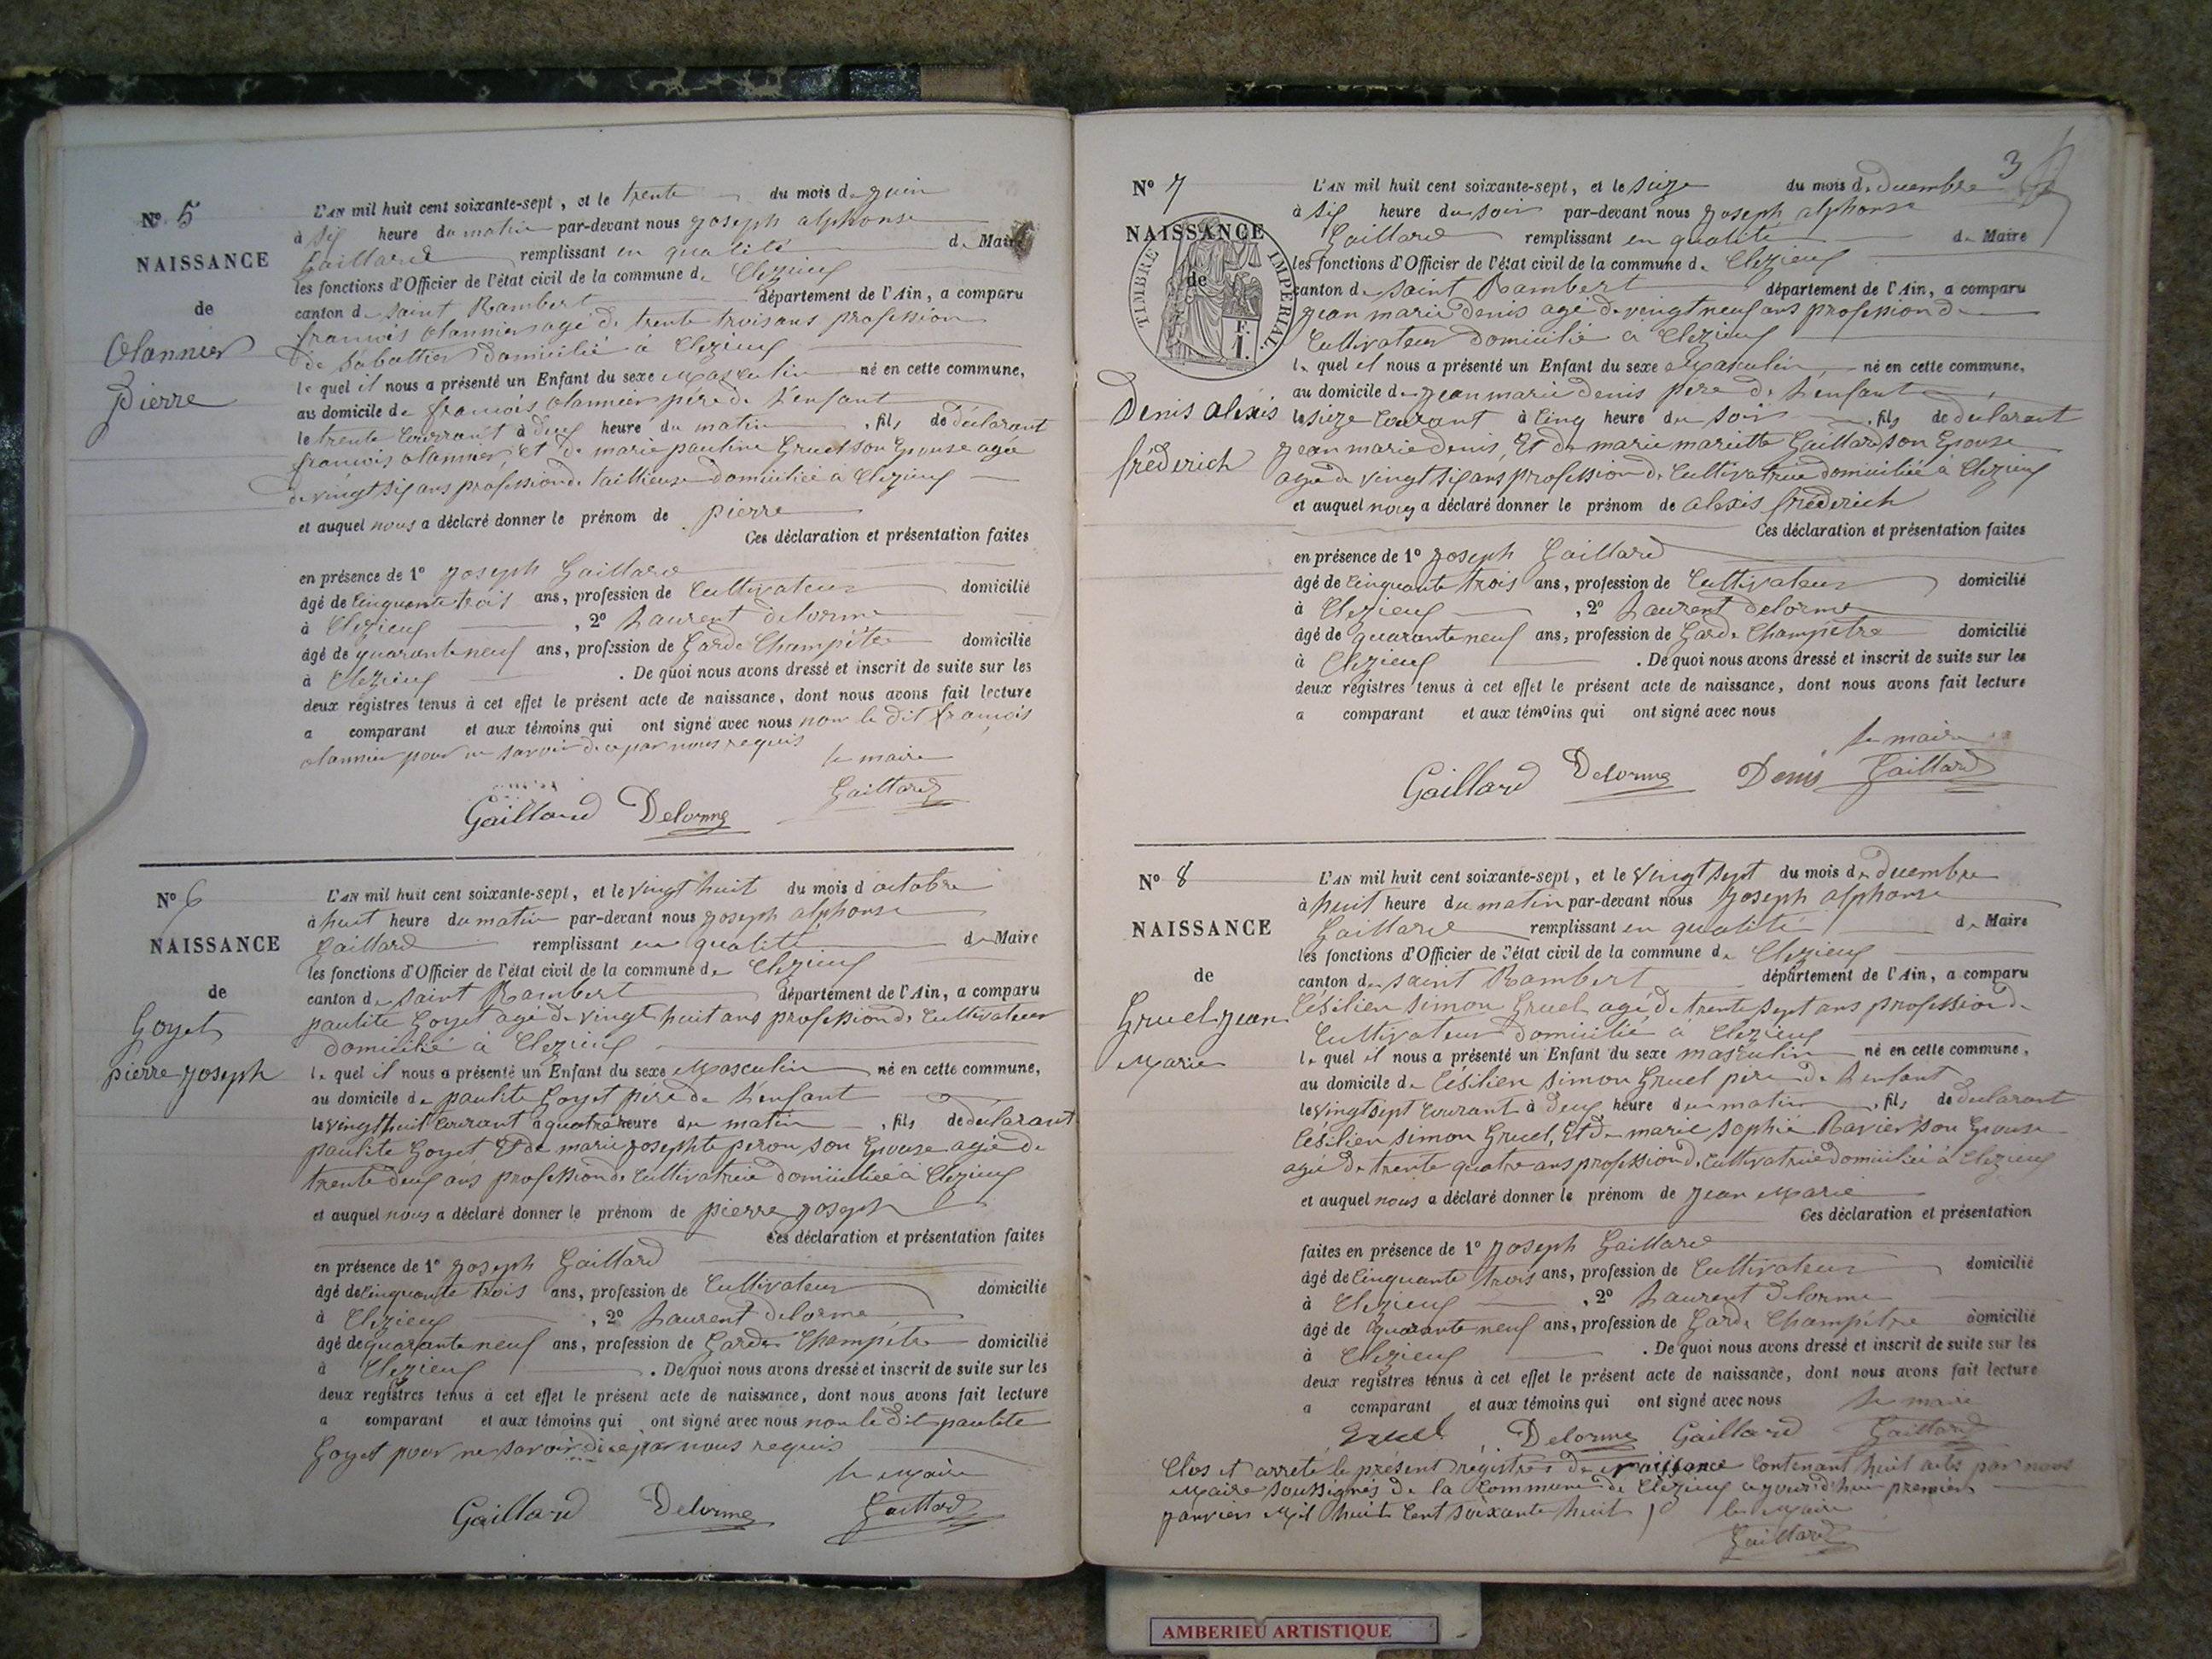 N° 5
NAISSANCE
de
Olannier
Pierre
L'AN mil huit cent soixante-sept, et le trente du mois de juin
à six heure du matin par-devant nous joseph alphonse
Gaillard remplissant en qualité de Maire
les fonctions d'Officier de l'état civil de la commune de Clezieu
canton de Saint Rambert département de l'Ain, a comparu
francois olannier agé de trente trois ans profession
de Sabottier domicilié à Clezieu
le quel il nous a présenté un Enfant du sexe Masculin né en cette commune,
au domicile de francois olannier père de l'enfant
le trente Courrant à deux heure du matin, fils de déclarant
francois olannier, et de marie pauline Gruel son Epouse agée
de vingt six ans profession de taillieuse domiciliée à Clezieu
et auquel nous a déclaré donner le prénom de pierre
Ces déclaration et présentation faites
en présence de 1° joseph Gaillard
âgé de Cinquante trois ans, profession de Cultivateur domicilié
à Clezieu, 2° Laurent delorme
âgé de quarante neuf ans, profession de Garde Champêtre domicilié
à Clezieu. De quoi nous avons dressé et inscrit de suite sur les
deux régistres tenus à cet effet le présent acte de naissance, dont nous avons fait lecture
a comparant et aux témoins qui ont signé avec nous non le dit francois
olannier pour ne savoir de ce par nous requis
le maire
Gaillard Delorme Gaillard
N° 6
NAISSANCE
de
Goyet
pierre joseph
L'AN mil huit cent soixante-sept, et le vingt huit du mois d'octobre
à huit heure du matin par-devant nous joseph alphonse
Gaillard remplissant en qualité de Maire
les fonctions d'Officier de l'état civil de la commune de Clezieu
canton de Saint Rambert département de l'Ain, a comparu
paulite Goyet agé de vingt huit ans profession de Cultivateur
domicilié à Clezieu
le quel il nous a présenté un Enfant du sexe Masculin né en cette commune,
au domicile de paulite Goyet père de l'enfant
le vingt huit Courant à quatre heure du matin, fils de déclarant
paulite Goyet Et de marie josephte peron son Epouse agée de
trente deux ans profession de Cultivatrice domiciliée à Clezieu
et auquel nous a déclaré donner le prénom de pierre joseph
Ces déclaration et présentation faites
en présence de 1° joseph Gaillard
âgé de Cinquante trois ans, profession de Cultivateur domicilié
à Clezieu, 2° Laurent delorme
âgé de quarante neuf ans, profession de Garde Champêtre domicilié
à Clezieu. De quoi nous avons dressé et inscrit de suite sur les
deux registres tenus à cet effet le présent acte de naissance, dont nous avons fait lecture
a comparant et aux témoins qui ont signé avec nous non le dit paulite
Goyet pour ne savoir de ce par nous requis
le Maire
Gaillard Delorme Gaillard
3
N° 7
NAISSANCE
de
TIMBRE IMPÉRIAL.
F. I.
Denis alexis
fréderich
L'AN mil huit cent soixante-sept, et le seize du mois de decembre
à six heure du soir par-devant nous joseph alphonse
Gaillard remplissant en qualité de Maire
les fonctions d'Officier de l'état civil de la commune de Clezieu
canton de Saint Rambert département de l'Ain, a comparu
jean marie denis agé de vingt neuf ans profession de
Cultivateur domicilié a Clezieu
le quel il nous a présenté un Enfant du sexe Masculin né en cette commune,
au domicile de jean marie denis père de l'enfant
le seize Courant à Cinq heure du soir, fils de declarant
jean marie denis, Et de marie mariette Gaillard son Epouse
agée de vingt six ans profession de Cultivatrice domiciliée à Clezieu
et auquel nous a déclaré donner le prénom de alexis fréderich
Ces déclaration et présentation faites
en présence de 1° joseph Gaillard
âgé de Cinquante trois ans, profession de Cultivateur domicilié
à Clezieu, 2° Laurent delorme
âgé de quarante neuf ans, profession de Garde Champêtre domicilié
à Clezieu. De quoi nous avons dressé et inscrit de suite sur les
deux régistres tenus à cet effet le présent acte de naissance, dont nous avons fait lecture
a comparant et aux témoins qui ont signé avec nous
le maire
Gaillard Delorme Denis Gaillard
N° 8
NAISSANCE
de
Gruel jean
Marie
L'AN mil huit cent soixante-sept, et le vingt sept du mois de decembre
à huit heure du matin par-devant nous joseph alphonse
Gaillard remplissant en qualité de Maire
les fonctions d'Officier de l'état civil de la commune de Clezieu
canton de Saint Rambert département de l'Ain, a comparu
Césilien simon Gruel agé de trente sept ans profession de
Cultivateur domicilié a Clezieu
le quel il nous a présenté un Enfant du sexe masculin né en cette commune,
au domicile de Césilien simon Gruel père de l'enfant
le vingt sept Courant à deux heure du matin, fils de declarant
Césilien simon Gruel, Et de marie sophie Ravier son Epouse
agée de trente quatre ans profession de Cultivatrice domiciliée à Clezieu
et auquel nous a déclaré donner le prénom de jean Marie
Ces déclaration et présentation
faites en présence de 1° joseph Gaillard
âgé de Cinquante trois ans, profession de Cultivateur domicilié
à Clezieu, 2° Laurent delorme
âgé de quarante neuf ans, profession de Garde Champêtre domicilié
à Clezieu. De quoi nous avons dressé et inscrit de suite sur les
deux régistres tenus à cet effet le présent acte de naissance, dont nous avons fait lecture
a comparant et aux témoins qui ont signé avec nous le maire
Gruel Delorme Gaillard Gaillard
Clos et arrêté le présent régistres de naissance Contenant huit actes par nous
Maire soussignés de la Commune de Clezieu ce jourd'hui premier
janvier Mil huit Cent soixante huit le Maire
Gaillard
AMBERIEU ARTISTIQUE